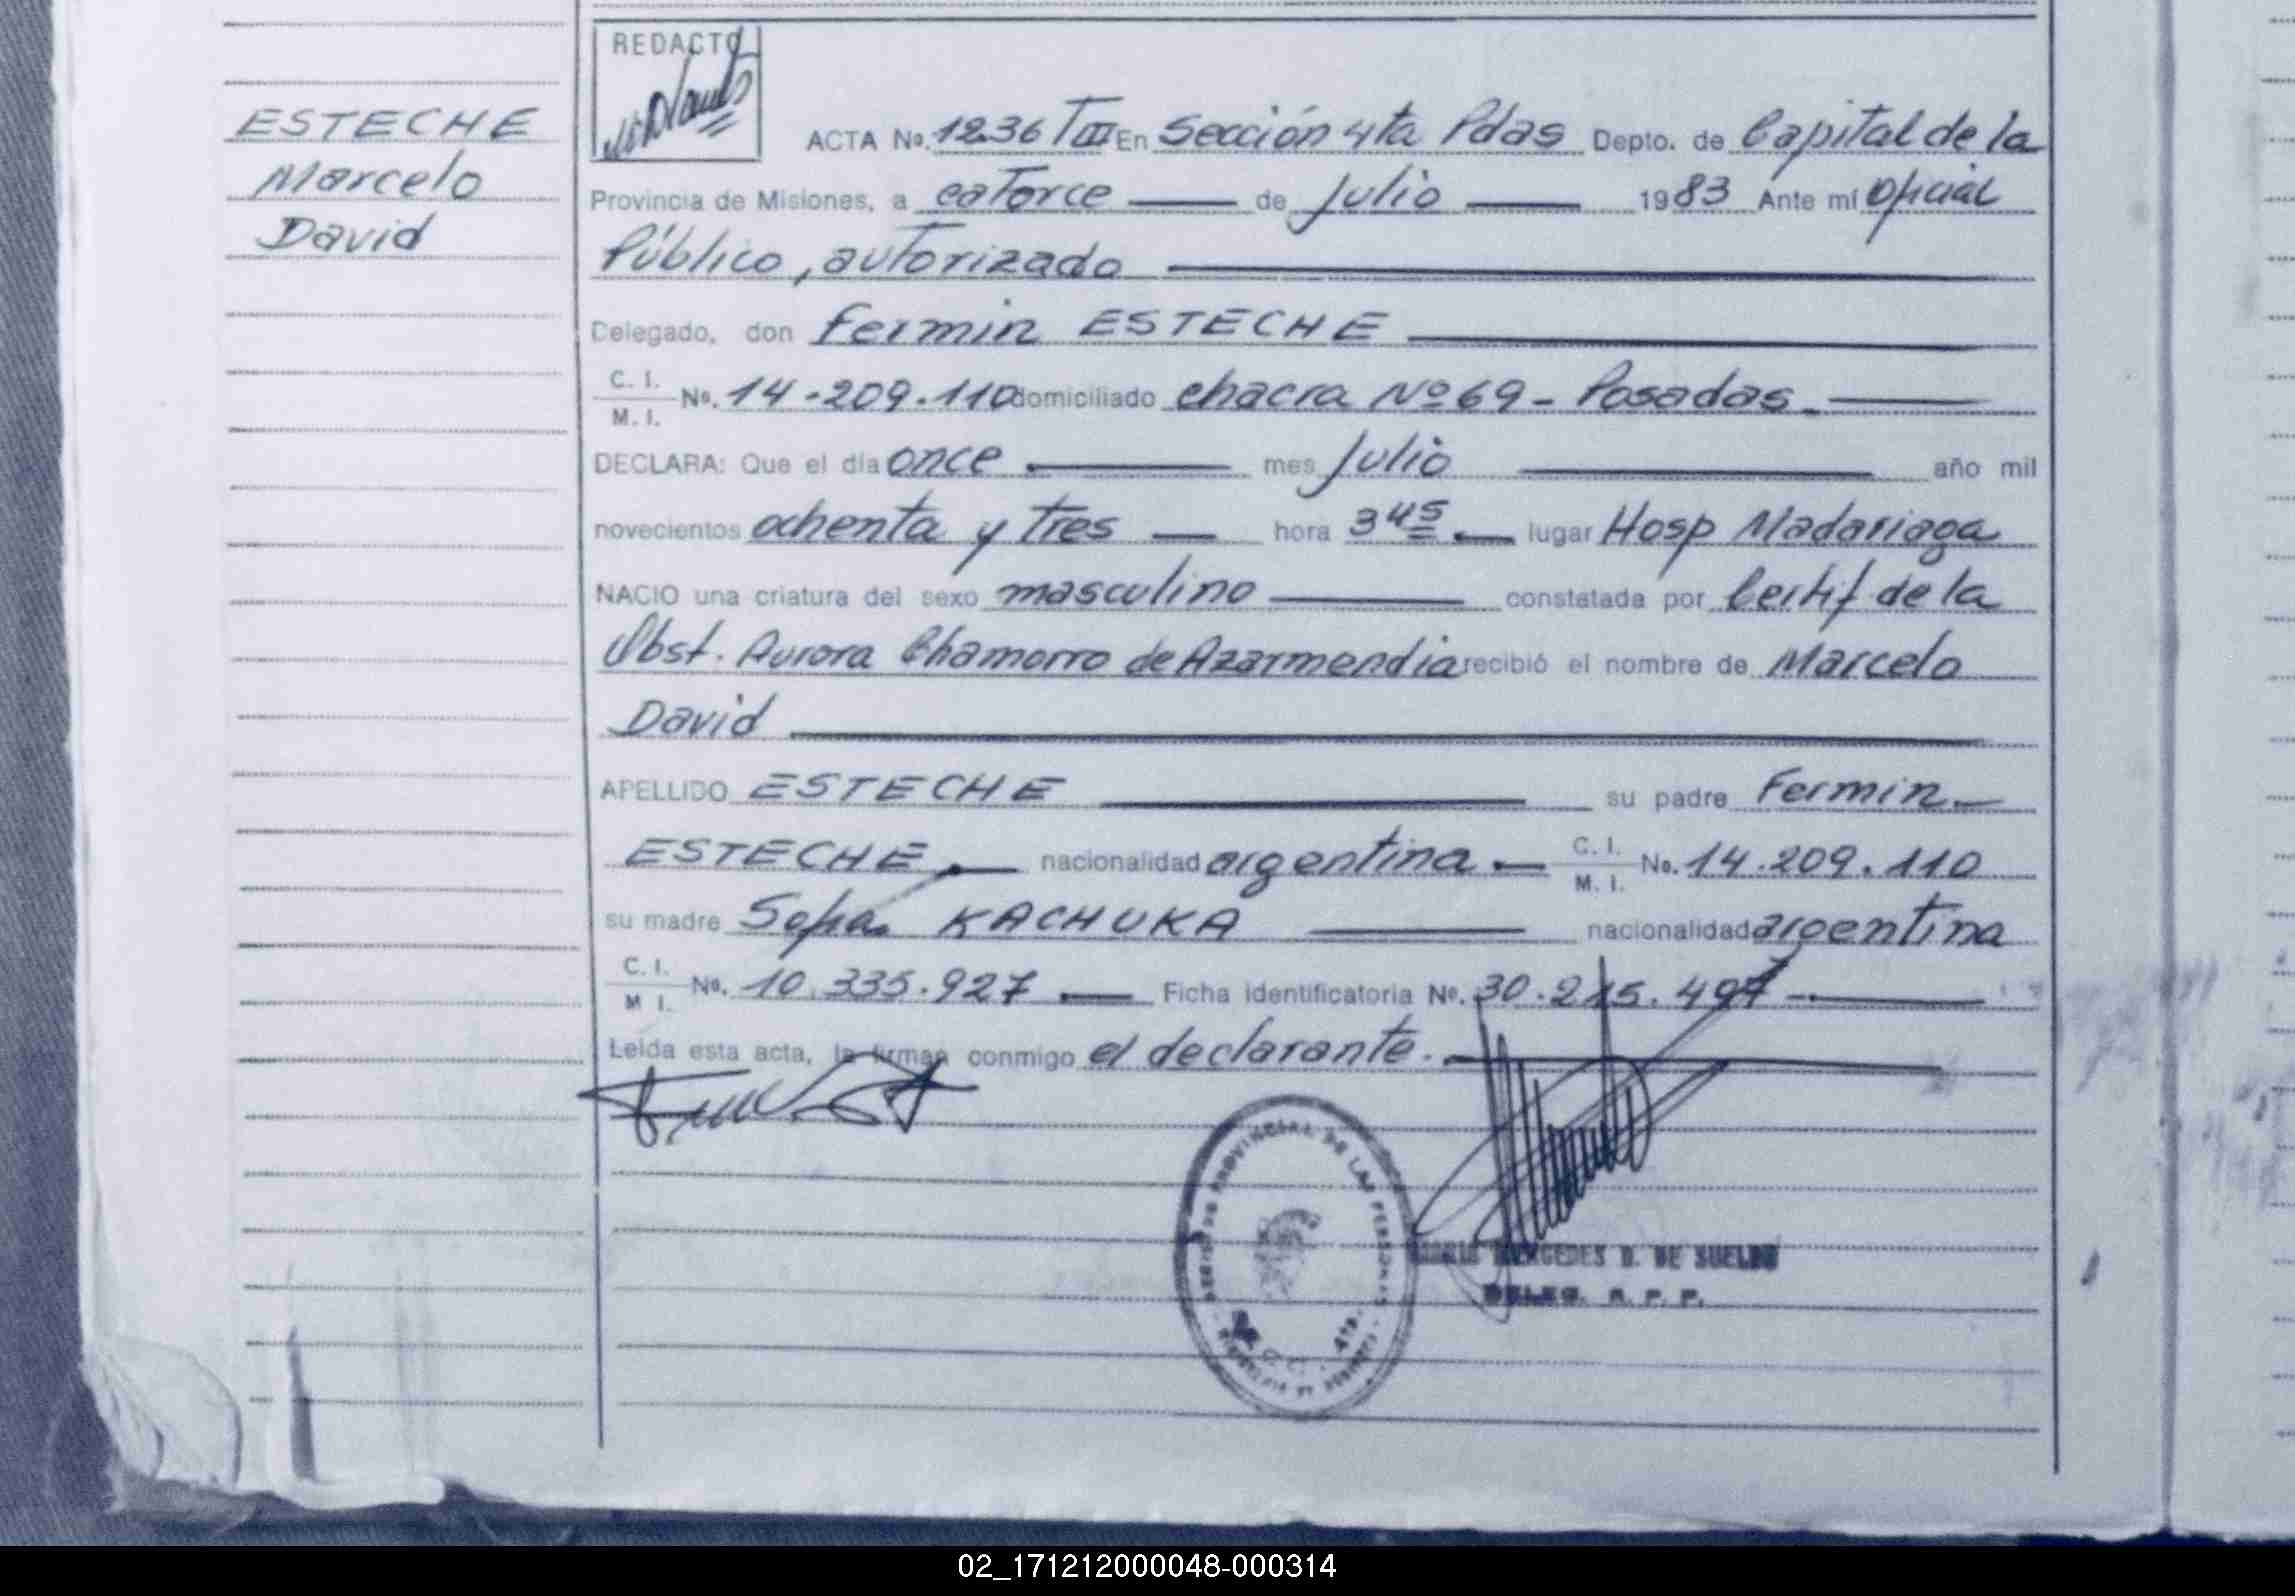 ESTECHE
Marcelo
David
REDACTO
ACTA No. 1236 TIII En Sección 4ta Pdas Depto. de Capital de la
Provincia de Misiones, a catorce de Julio 1983 Ante mí Oficial
Público, autorizado
Delegado, don Fermin ESTECHE
C. I.
M. I. No. 14.209.110 domiciliado chacra Nº 69 - Posadas.
DECLARA: Que el día once mes Julio año mil
novecientos ochenta y tres hora 3 45 lugar Hosp Madariaga
NACIO una criatura del sexo masculino constatada por Certif de la
Obst. Aurora Chamorro de Azarmendia recibió el nombre de Marcelo
David
APELLIDO ESTECHE su padre Fermin
ESTECHE nacionalidad argentina C. I.
M. I. No. 14.209.110
su madre KACHUKA nacionalidad argentina
C. I.
M I. No. 10.335.927 Ficha identificatoria No.
Leída esta acta, la firman conmigo el declarante.
PROVINCIAL DE LAS PERSONAS
MERCEDES D. DE SUELDO
DELEG. R. P. P.
02_171212000048-000314